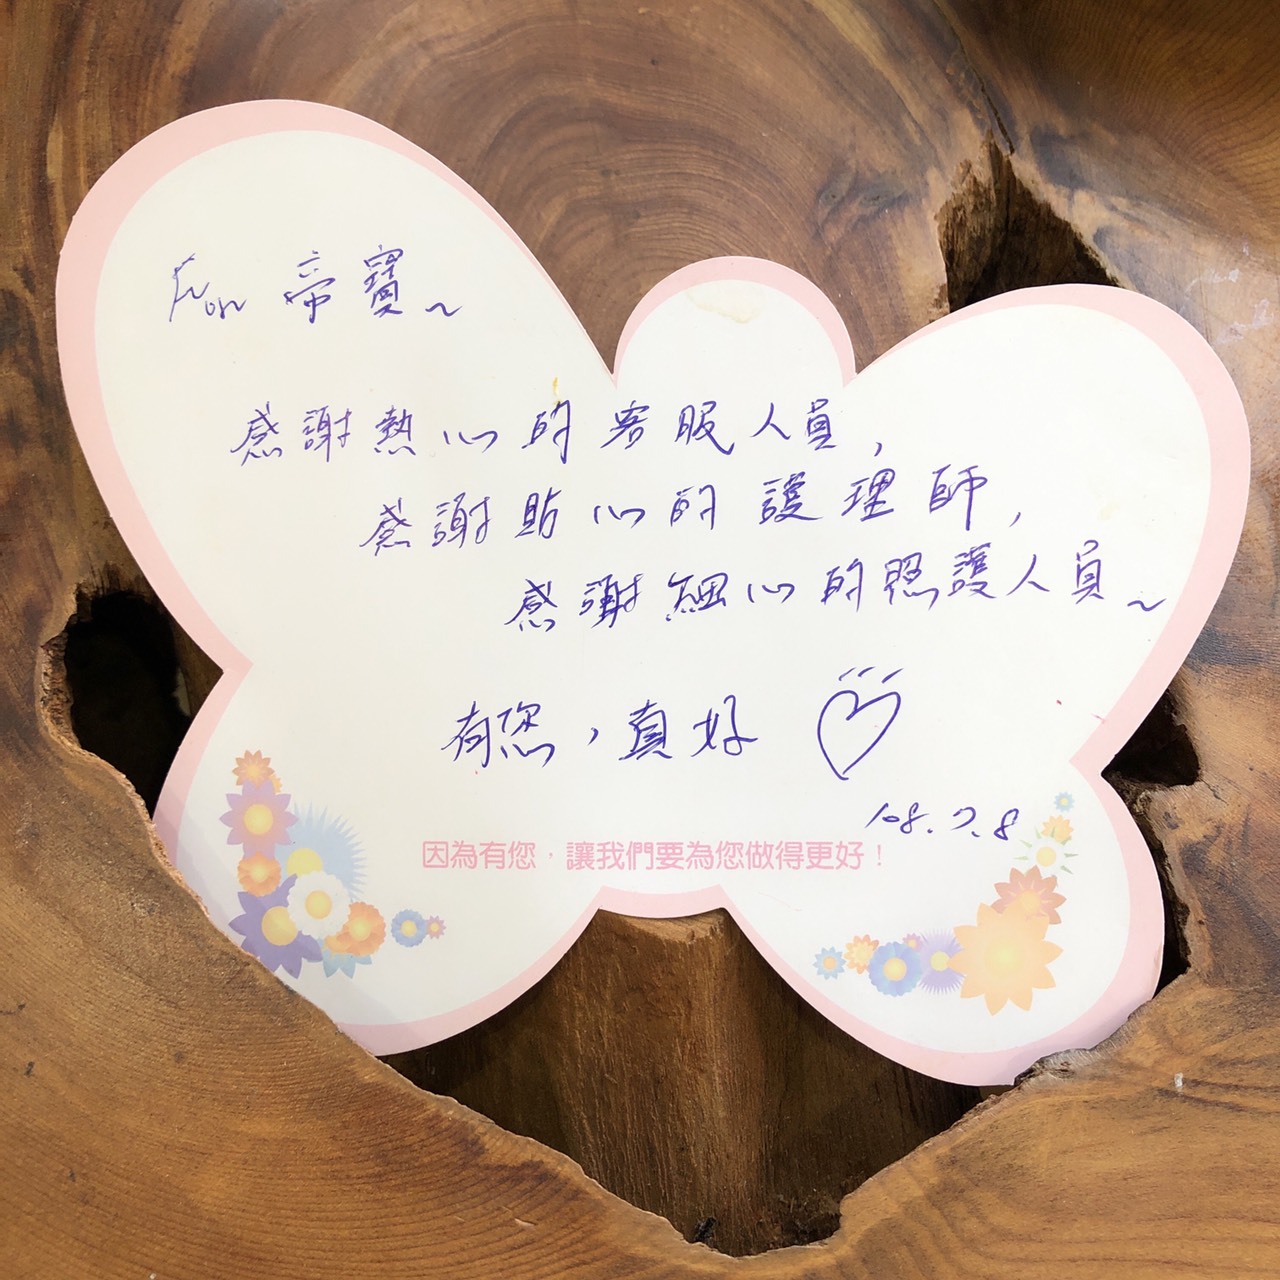 For 帝寶~
感謝熱心的客服人員,
感謝貼心的護理師,
感謝細心的照護人員~
有您,真好
108.7.8
因為有您,讓我們要為您做得更好!